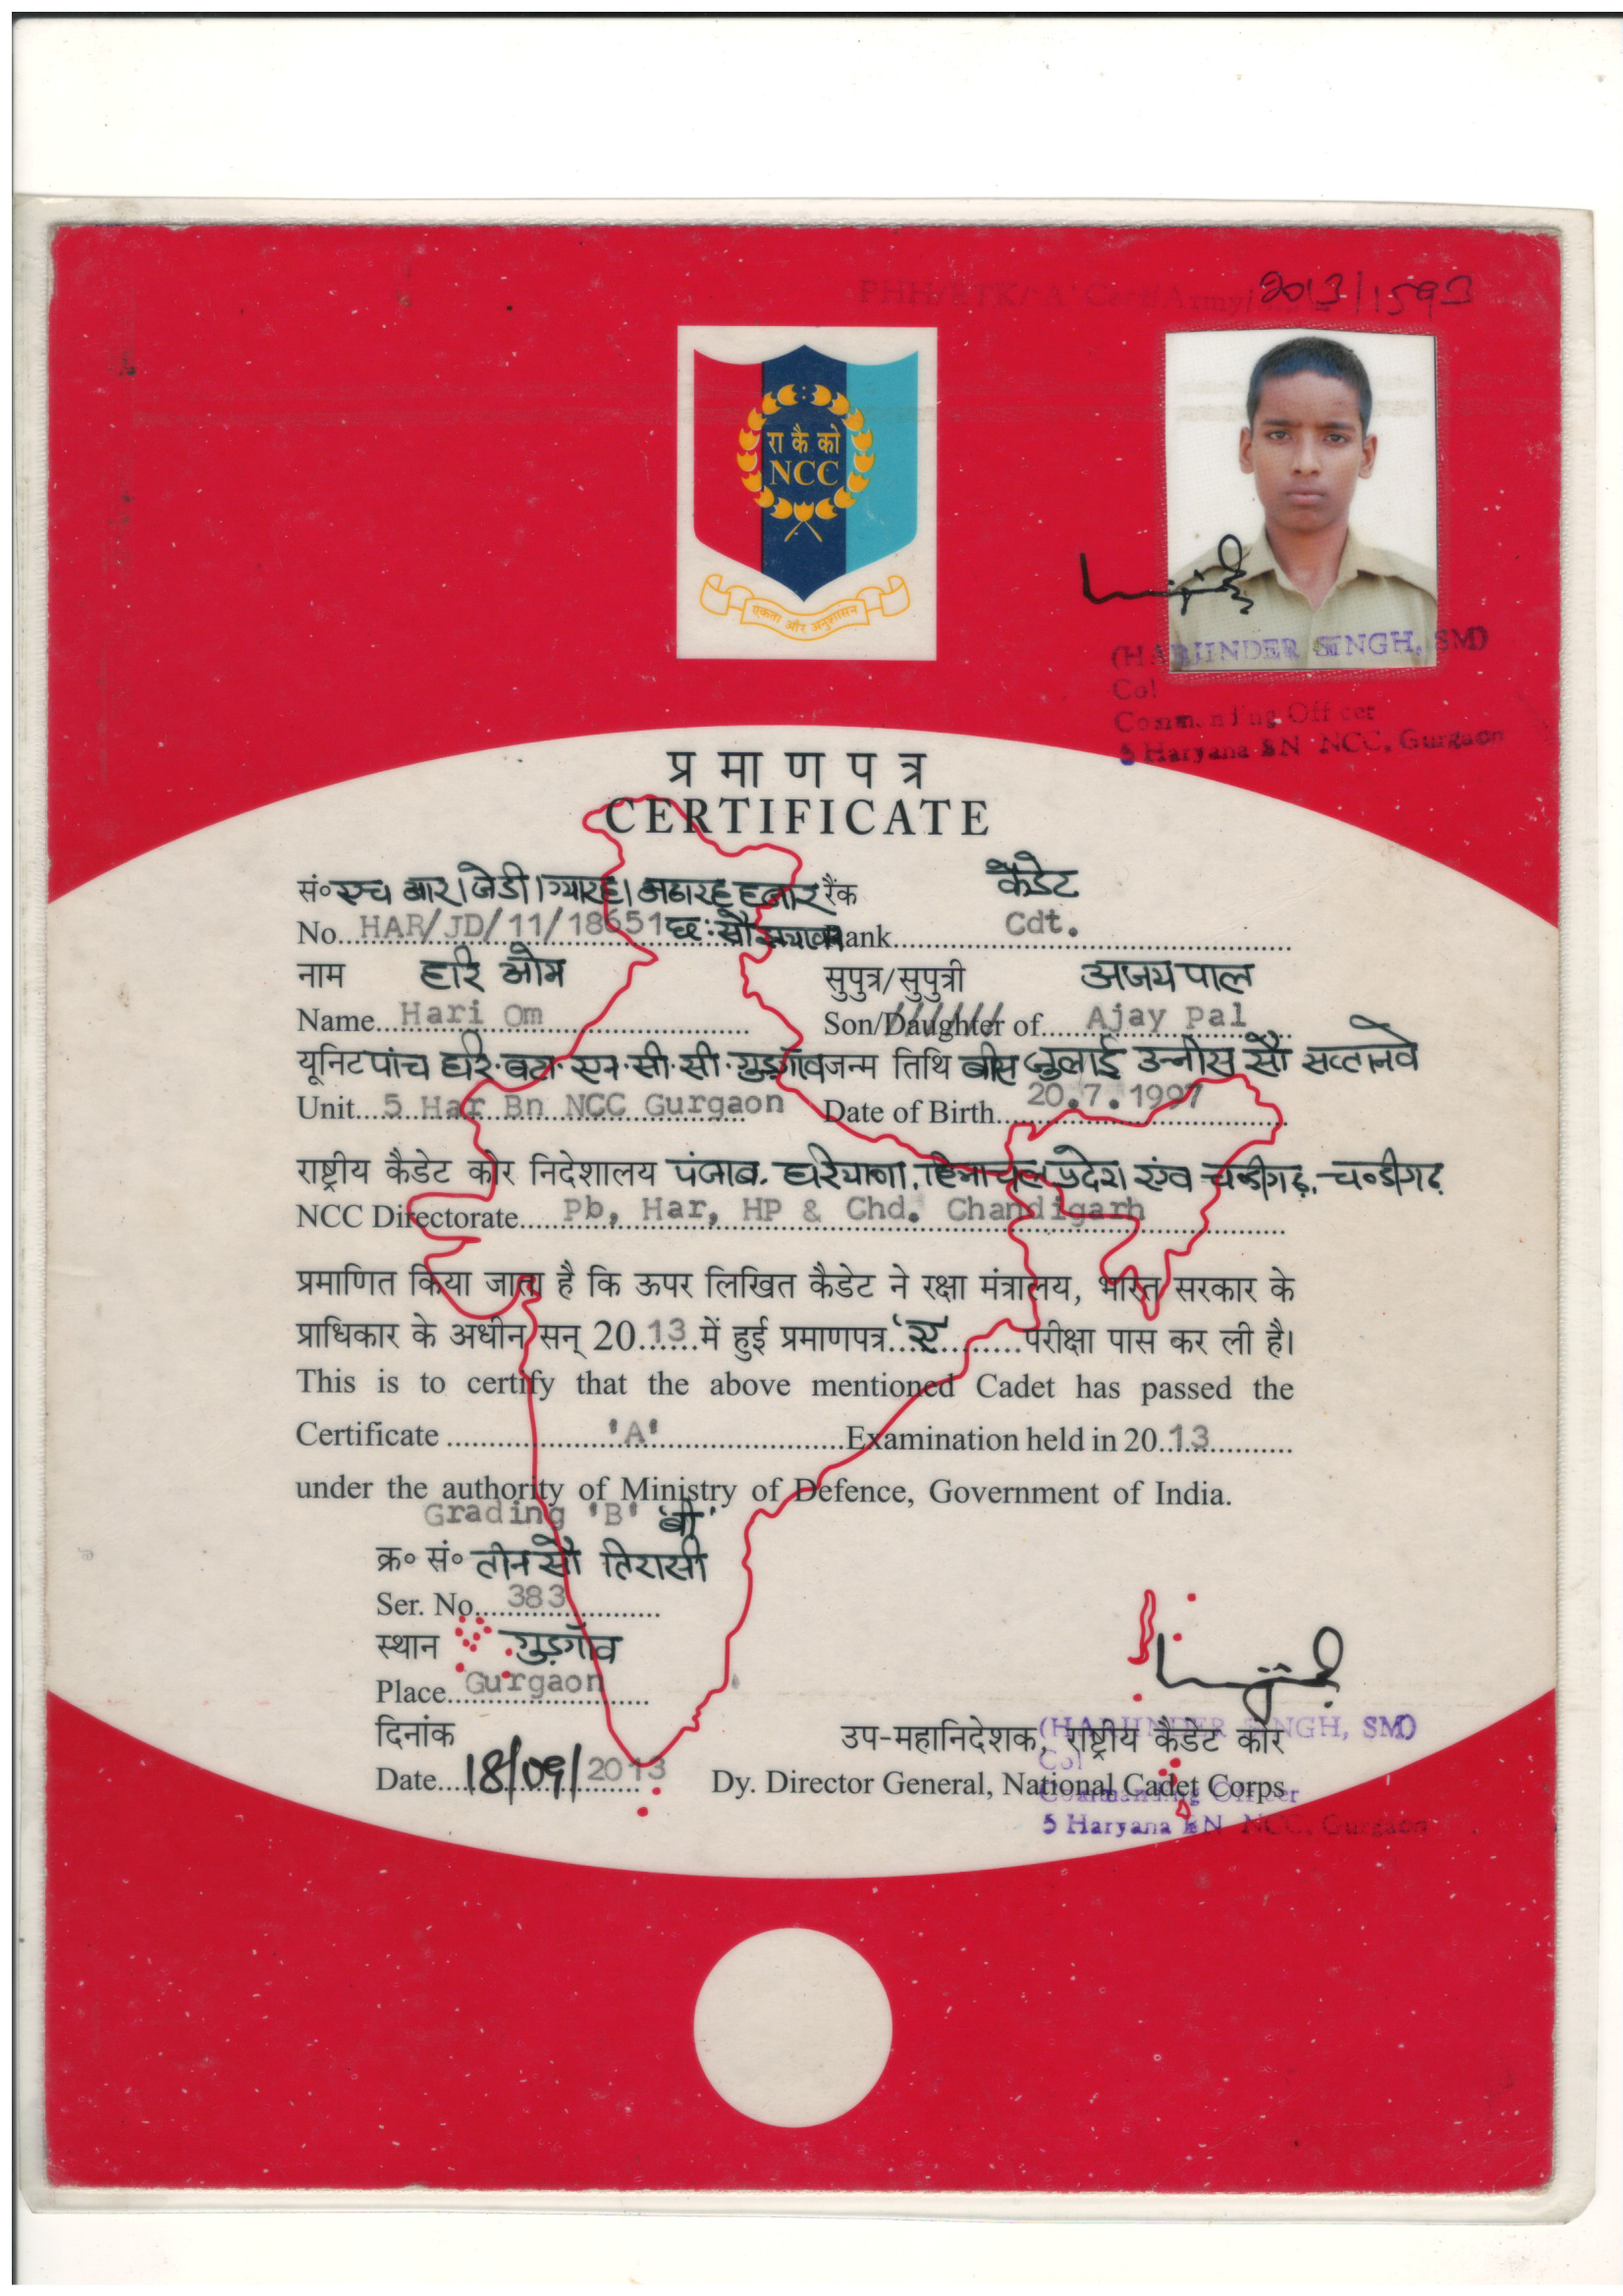 PHH/RTK/'A' Cert/Army/2013/1593
रा कै को
NCC
एकता और अनुशासन
(HARJINDER SINGH, SM)
Col
Commanding Officer
5 Haryana BN NCC, Gurgaon
प्रमाणपत्र
CERTIFICATE
सं० एच आर/जेडी/ग्यारह/अठारह हजार रैंक कैडेट
No. HAR/JD/11/18651 छः सौ इक्यावन Rank Cdt.
नाम हरि ओम सुपुत्र/सुपुत्री अजय पाल
Name Hari Om Son/Daughter of Ajay Pal
यूनिट पांच हरि. बटा. एन. सी. सी. गुड़गाँव जन्म तिथि बीस जुलाई उन्नीस सौ सत्तानवे
Unit 5 Har Bn NCC Gurgaon Date of Birth 20.7.1997
राष्ट्रीय कैडेट कोर निदेशालय पंजाब, हरियाणा, हिमाचल प्रदेश एंव चण्डीगढ़, चण्डीगढ़
NCC Directorate Pb, Har, HP & Chd. Chandigarh
प्रमाणित किया जाता है कि ऊपर लिखित कैडेट ने रक्षा मंत्रालय, भारत सरकार के
प्राधिकार के अधीन सन् 2013 में हुई प्रमाणपत्र 'ए' परीक्षा पास कर ली है।
This is to certify that the above mentioned Cadet has passed the
Certificate 'A' Examination held in 2013
under the authority of Ministry of Defence, Government of India.
Grading 'B' 'बी'
क्र० सं० तीन सौ तिरासी
Ser. No. 383
स्थान गुड़गाँव
Place Gurgaon
दिनांक
Date 18/09/2013
उप-महानिदेशक, राष्ट्रीय कैडेट कोर
Dy. Director General, National Cadet Corps
(HARJINDER SINGH, SM)
Col
Commanding Officer
5 Haryana BN NCC, Gurgaon